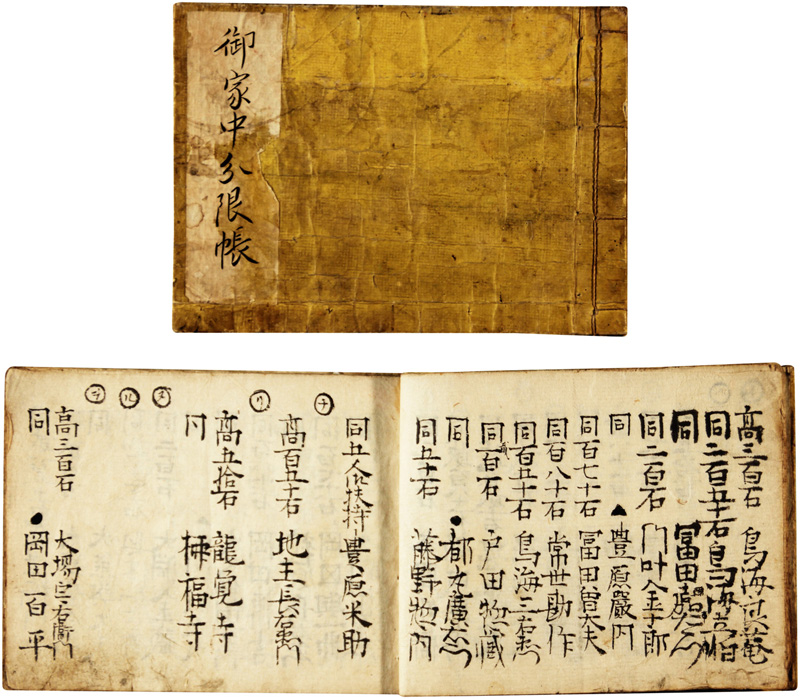 御家中分限帳
高三百石 鳥海良菴
同二百五十石 鳥海
同 冨田
同二百石 門叶金十郎
同 ▲ 豊原嚴内
同百七十石 冨田曽太夫
同百八十石 常世勘作
同百五十石 鳥海三右衛
同百石 戸田惣蔵
同 ● 都丸廣右
同五十石 藤野惣内
㋠
同五人扶持 豊原米助
高百五十石 地主長右衛門
㋷
高五拾石 龍覚寺
同 福寺
㋦
㋸
㋾
高三百石 大場 右衛門
同 ● 岡田百平